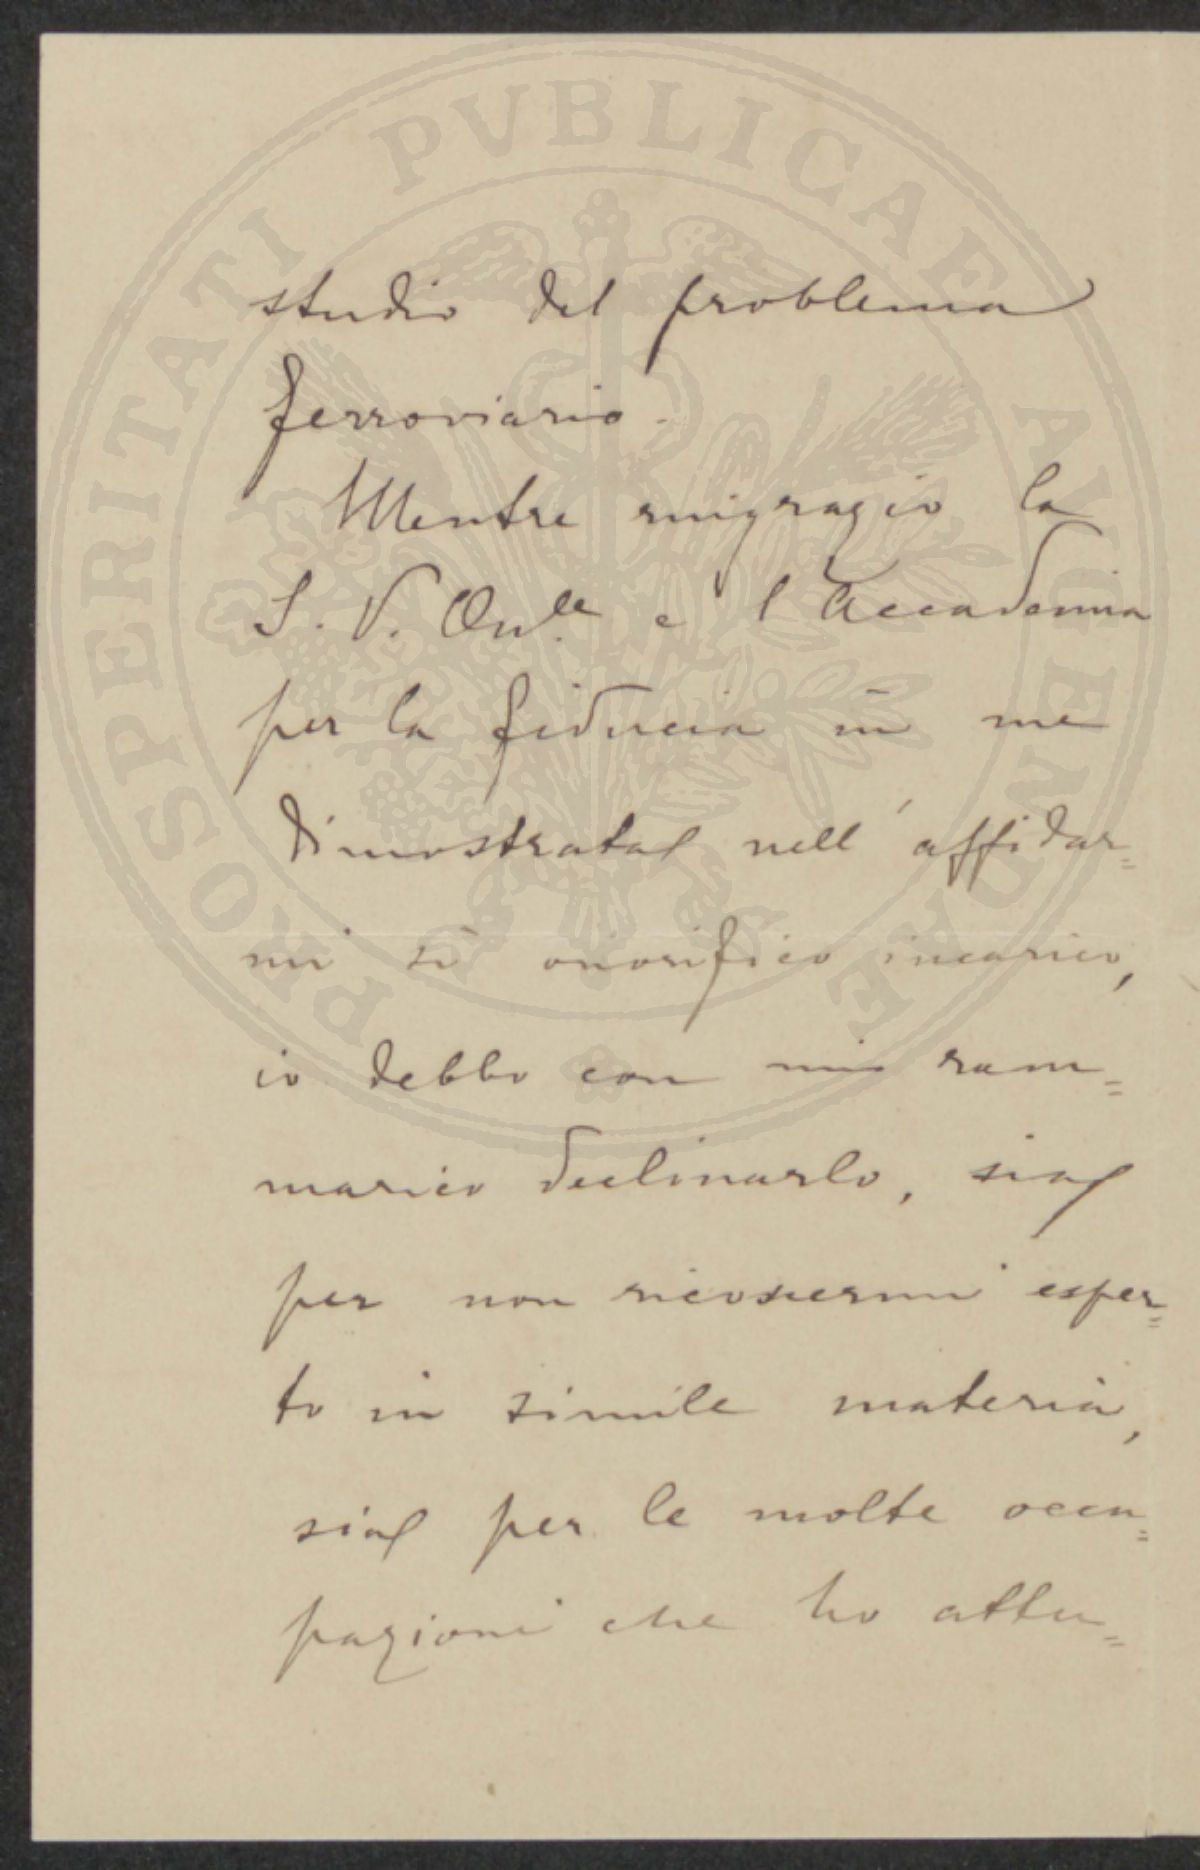 PROSPERITATI PUBLICAE AUGENDAE
studio del problema
ferroviario.
Mentre ringrazio la
S. V. Onle e l'Accademia
per la fiducia in me
dimostrata nell'affidar=
mi sì onorifico incarico,
io debbo con mio ram=
marico declinarlo, sia
per non riconoscermi esper=
to in simile materia,
sia per le molte occu=
pazioni che ho attu=